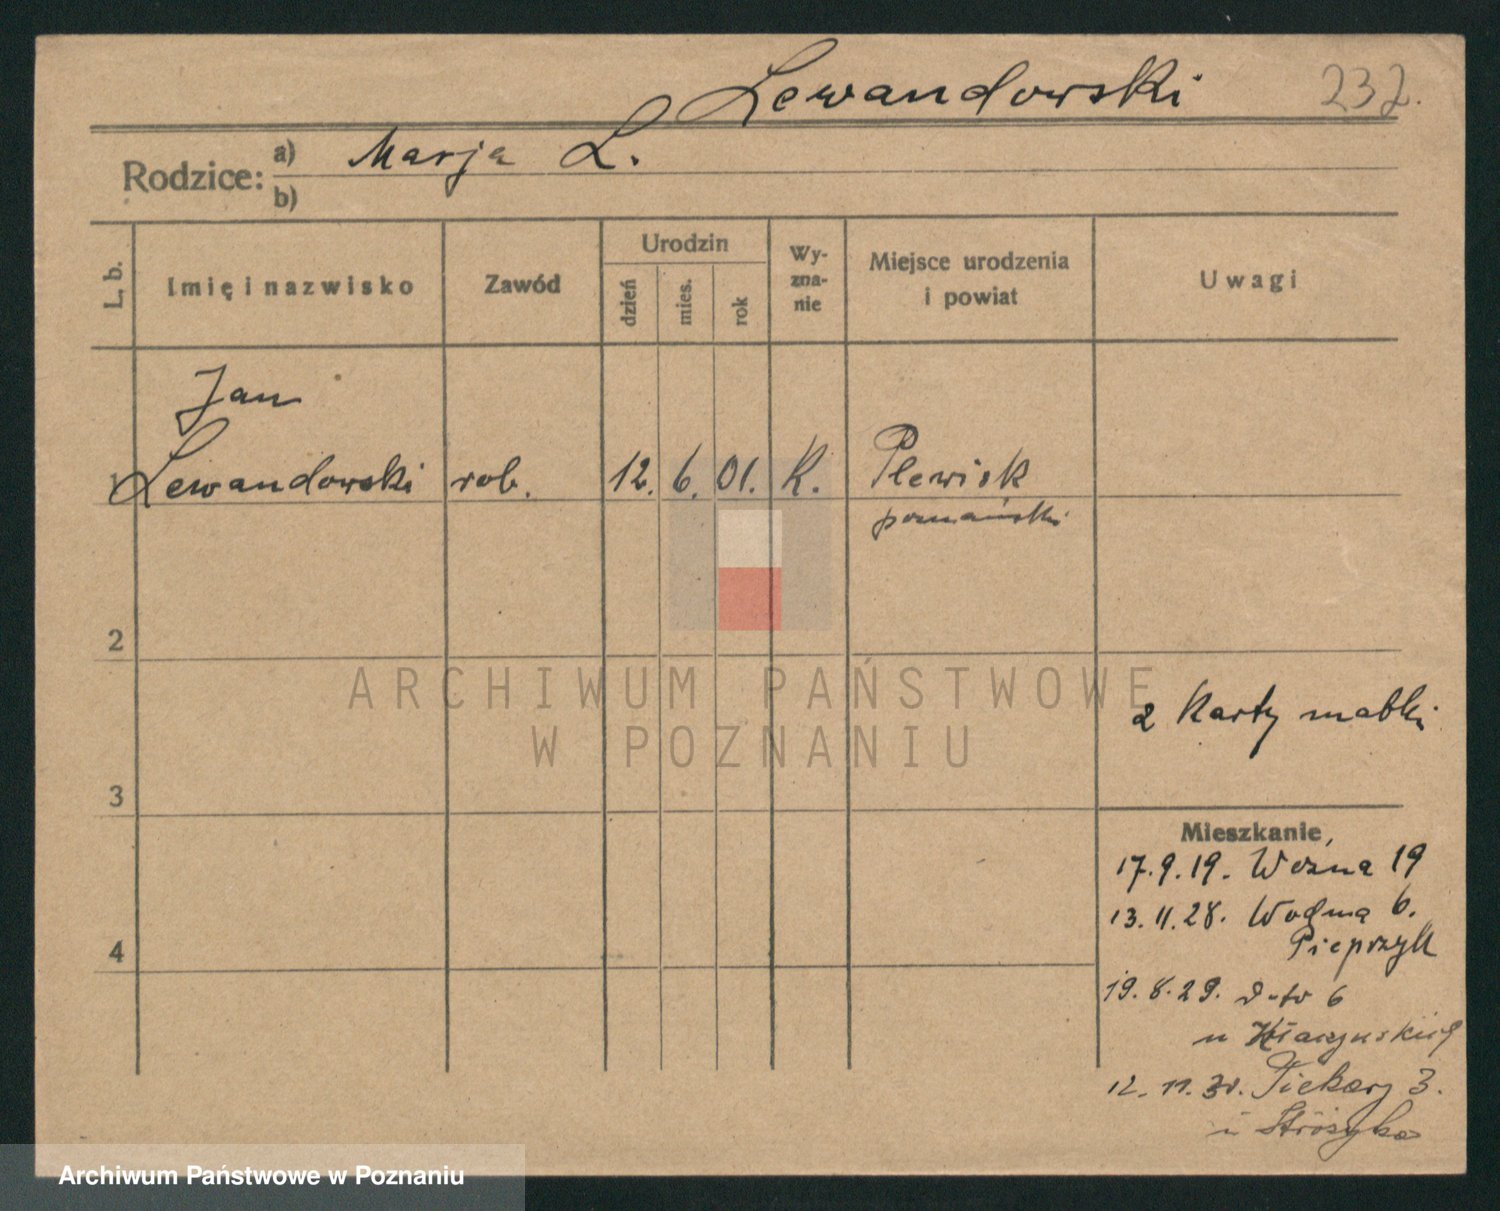 Lewandowski 232.
Rodzice:
a) Marja L.
b)
L. b.
Imię i nazwisko
Zawód
Urodzin
dzień
mies.
rok
Wy-
zna-
nie
Miejsce urodzenia
i powiat
Uwagi
Jan
1 Lewandowski rob. 12. 6. 01. K. Plewisk
poznański
2
ARCHIWUM PAŃSTWOWE
W POZNANIU
z Karty matki
3
Mieszkanie
17.9.19. Woźna 19
13.11.28. Wodna 6.
Pieprzyk
4
19.8.29. d-to 6
u
12. 11. 30. Piekary 3.
u Stróżyka
Archiwum Państwowe w Poznaniu